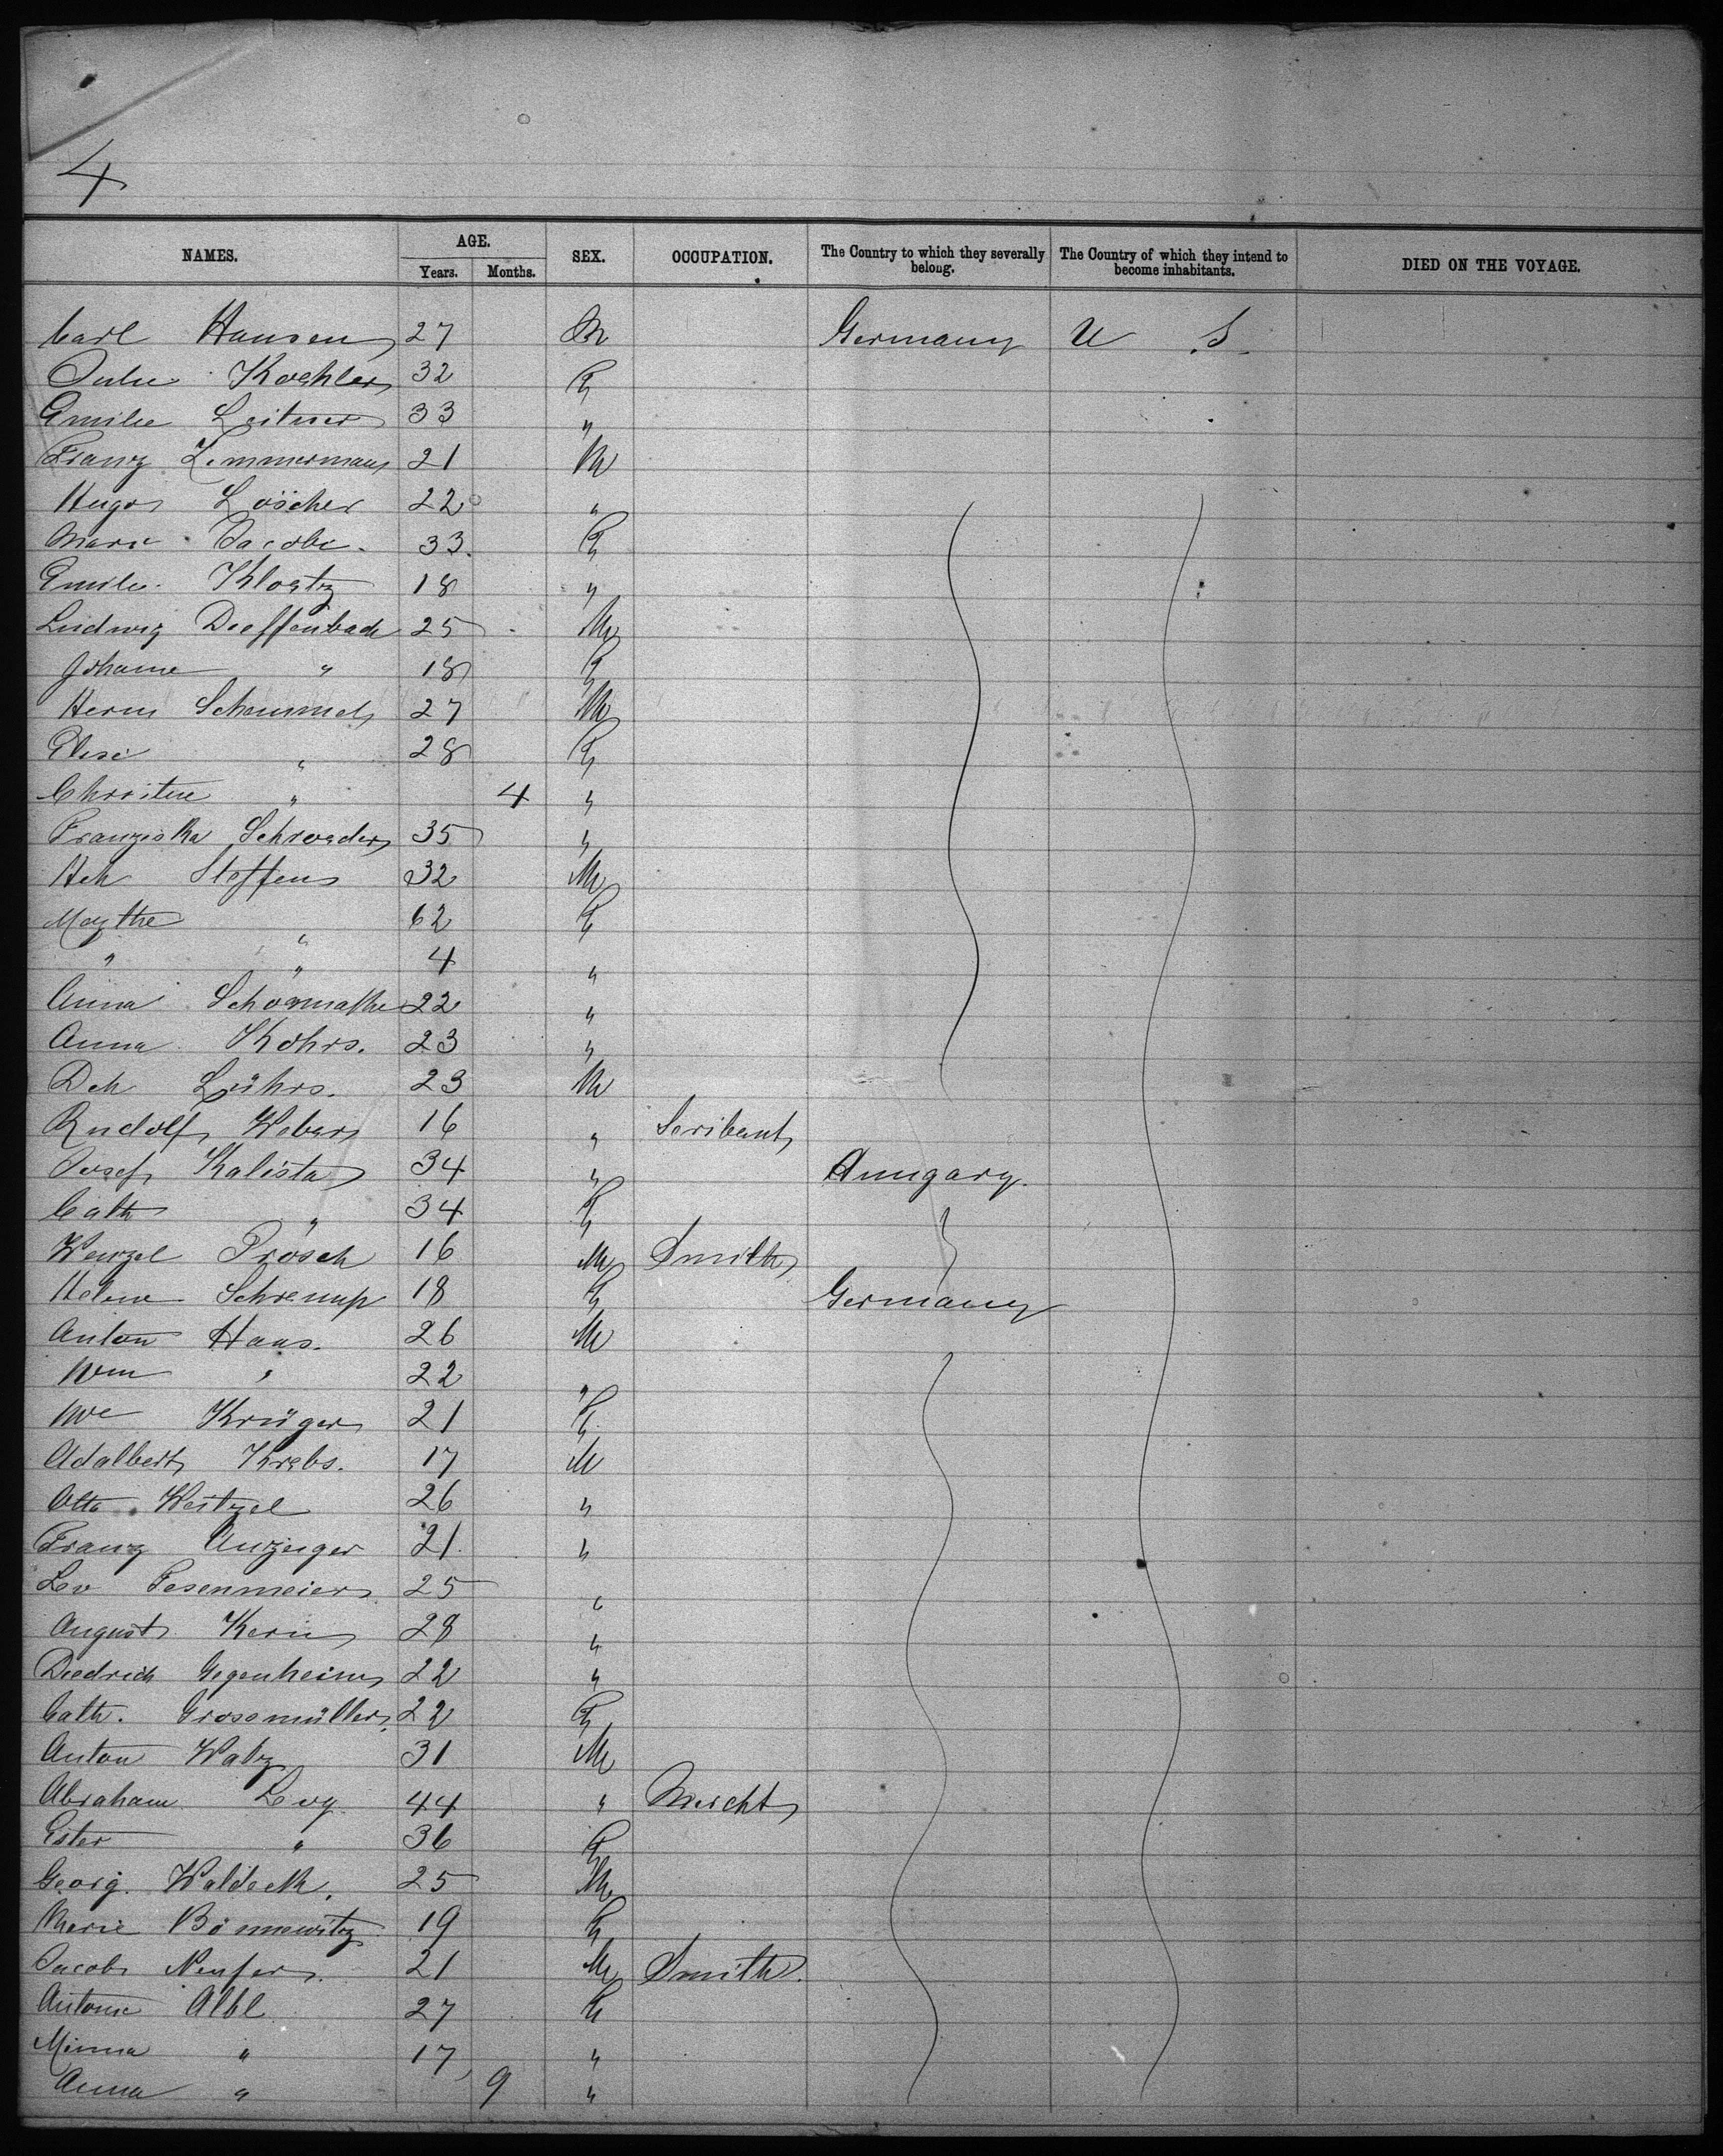 4
NAMES. AGE. SEX. OCCUPATION. The Country to which they severally belong. The Country of which they intend to become inhabitants. DIED ON THE VOYAGE.
Years. Months.
Carl Hansen 27 M Germany U S
Julie Koehler 32 F
Emilie Leitner 33 "
Franz Zimmermann 21 M
Hugo Löscher 22 "
Marie Jacobi. 33. F
Emilie Kloetz 18 "
Ludwig Dieffenbach 25 M
Johanne " 18 F
Herm Schemmel 27 M
Elise " 28 F
Christine " 4 "
Franziska Schroeder 35 "
Hch Steffens 32 M
Magthe " 62 F
" " 4 "
Anna 22 "
Anna Kohrs. 23 "
Dch Lührs. 23 M
Rudolf Weber 16 " Scribent
Josef Kalista 34 " Hungary.
Cath " 34 F
Wenzel Prosch 16 M Smith
Helene Schremp 18 F Germany
Anton Haas. 26 M
Wm " 22 "
We Krüger 21 F
Adalbert Krebs. 17 M
Otto Weitzel 26 "
Franz Anzeiger 21 "
Leo Fesenmeier 25 "
August Kern 28 "
Diedrich Gegenheim 22 "
Cath. Grossmüller 22 F
Anton Walz 31 M
Abraham Levy 44 " Mercht
Ester " 36 F
Georg. Waldeck. 25 M
Marie Bönnewitz 19 F
Jacob Neufer 21 M Smith.
Antonie Albl 27 F
Minna " 17 "
Anna " 9 "